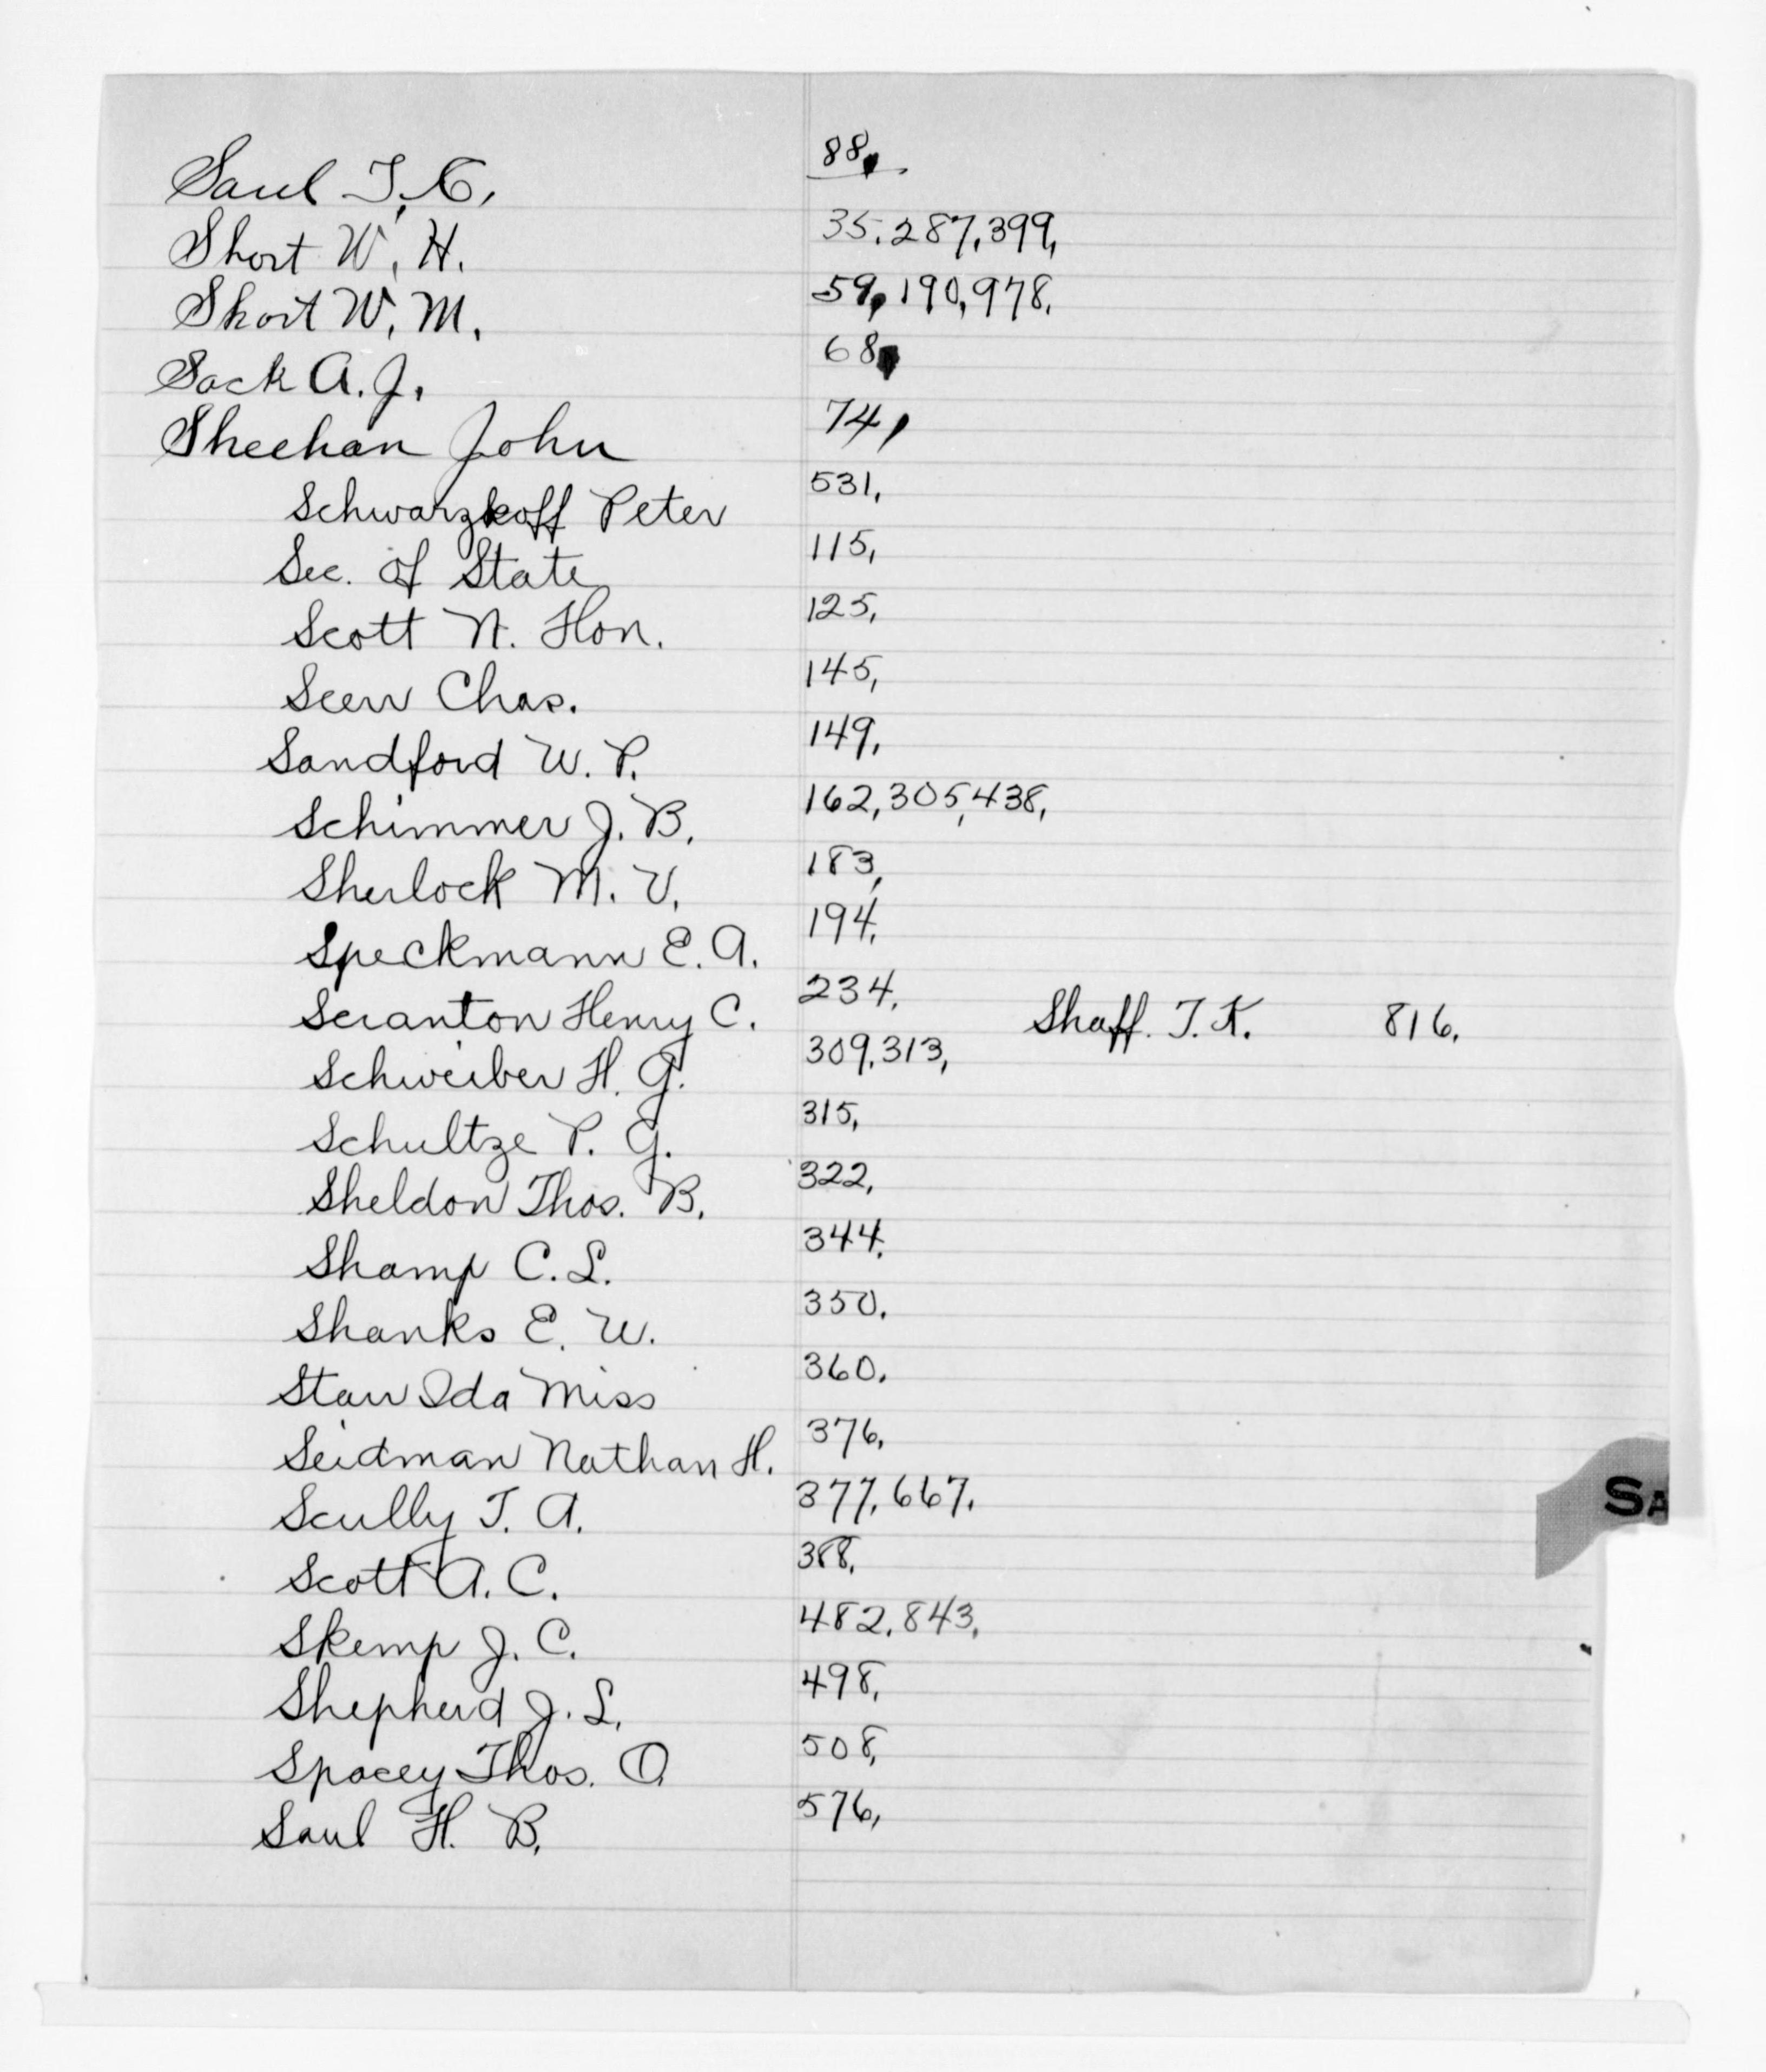 Saul T. C. 88,
Short W. H. 35, 287, 399,
Short W. M. 59, 190, 978.
Sack A. J. 68,
Sheehan John 74,
Schwarzkoff Peter 531,
Sec. of State 115,
Scott N. Hon. 125,
Seerr Chas. 145,
Sandford W. P. 149,
Schimmer J. B. 162, 305, 438,
Sherlock M. V. 183,
Speckmann E. A. 194,
Scranton Henry C. 234, Shaff. T. K. 816.
Schweiber H. G. 309, 313,
Schultze P. G. 315,
Sheldon Thos. B. 322,
Shamp C. L. 344,
Shanks E. W. 350.
Starr Ida Miss 360.
Seidman Nathan H. 376,
Scully T. A. 377, 667.
Scott A. C. 388,
Skemp J. C. 482, 843,
Shepherd J. L. 498,
Spacey Thos. O 508,
Saul H. B. 576,
SA